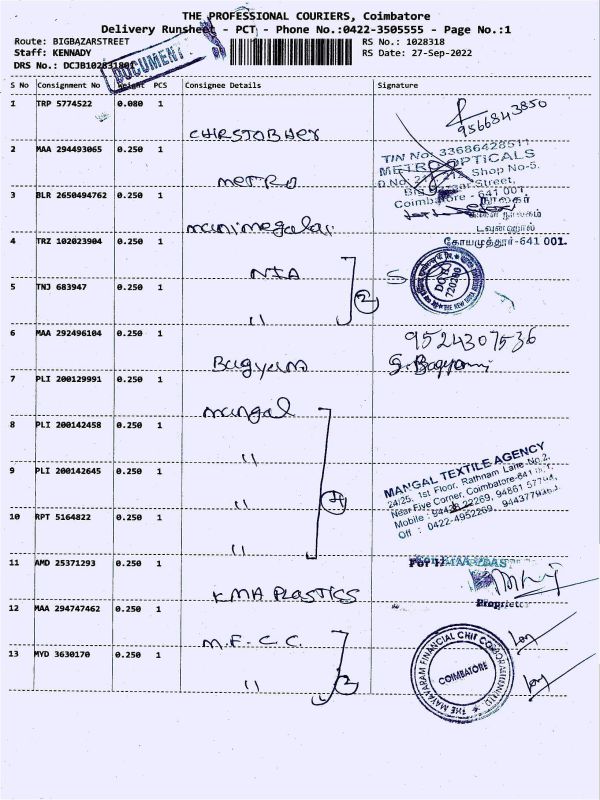 THE PROFESSIONAL COURIERS, Coimbatore
Delivery Runsheet - PCT - Phone No.:0422-3505555 - Page No.:1
Route: BIGBAZARSTREET RS No.: 1028318
Staff: KENNADY RS Date: 27-Sep-2022
DRS No.: DCJB1028318001
DOCUMENT
S No Consignment No Weight PCS Consignee Details Signature
1 TRP 5774522 0.080 1
9566843850
CHRSTOBHER
2 MAA 294493065 0.250 1
TIN No: 33686428511
METRO OPTICALS
Shop No-5,
Big Bazaar Street,
Coimbatore - 641 001
METRO
3 BLR 2650494762 0.250 1
manimegalai
டவுன்ஹால்
கோயமுத்தூர்-641 001.
4 TRZ 102023904 0.250 1
NIA
5 TNJ 683947 0.250 1
2
"
6 MAA 292496104 0.250 1
9524307536
Bagyam
7 PLI 200129991 0.250 1
mangal
8 PLI 200142458 0.250 1
"
9 PLI 200142645 0.250 1
"
4
MANGAL TEXTILE AGENCY
24/25, 1st Floor, Rathnam Lane No.2,
Near Five Corner, Coimbatore-641 001.
10 RPT 5164822 0.250 1
"
11 AMD 25371293 0.250 1
KMA PLASTICS
Proprietor
12 MAA 294747462 0.250 1
M.F.C.C.
13 MYD 3630170 0.250 1
"
2
THE MAYAVARAM FINANCIAL CHIT CORPORATION LTD
COIMBATORE